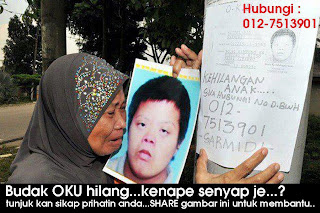 Hubungi :
012-7513901
KEHILANGAN
ANAK....
SILA HUBUNGI NO DIBAWAH
012-
7513901
GARMIDI
Budak OKU hilang...kenape senyap je...?
tunjuk kan sikap prihatin anda...SHARE gambar ini untuk membantu..